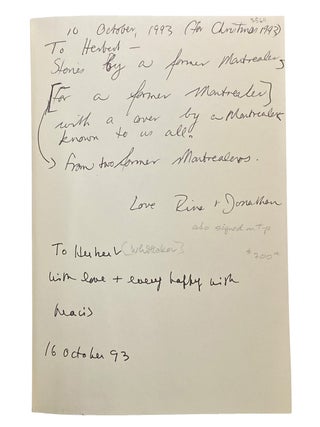 10 October, 1993 (for Christmas 1993)
To Herbert —
Stories by a former Montrealer,
[For a former Montrealer]
with a cover by a Montrealer
known to us all.
From two former Montrealers.
Love Rina + Jonathan
also signed on t-p
To Herbert [Whittaker]
$200
with love + every happy wish
Mavis
16 October 93